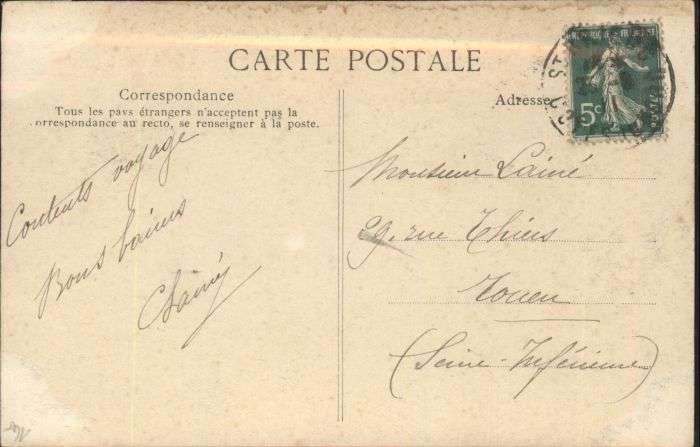 CARTE POSTALE
Correspondance
Tous les pays étrangers n'acceptent pas la
correspondance au recto, se renseigner à la poste.
Contents voyage
Bons bains
Adresse
Monsieur Lainé
29, rue Thiers
Rouen
(Seine-Inférieure)
REPUBLIQUE FRANÇAISE
5c